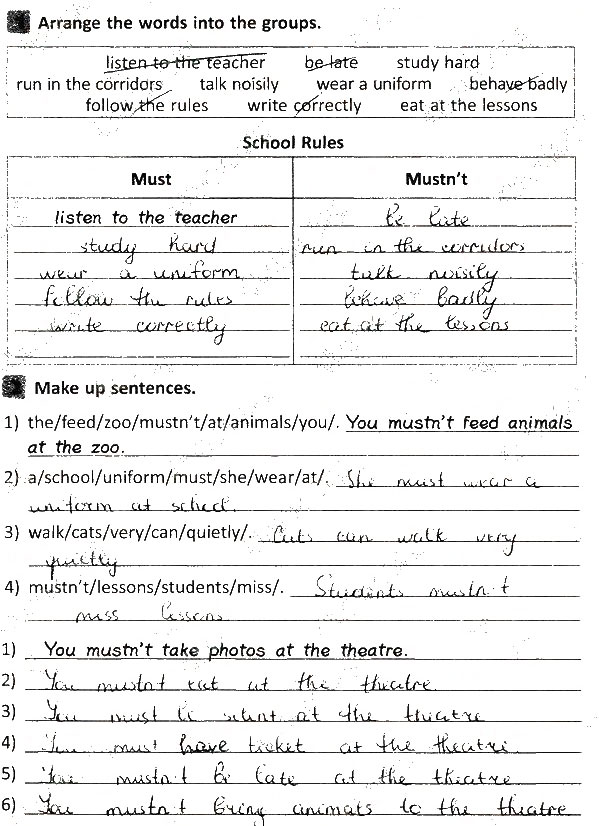 Arrange the words into the groups.
listen to the teacher be late study hard
run in the corridors talk noisily wear a uniform behave badly
follow the rules write correctly eat at the lessons
School Rules
Must Mustn't
listen to the teacher be late
study hard run in the corridors
wear a uniform talk noisily
follow the rules behave badly
write correctly eat at the lessons
Make up sentences.
1) the/feed/zoo/mustn't/at/animals/you/. You mustn't feed animals
at the zoo.
2) a/school/uniform/must/she/wear/at/. She must wear a
uniform at school.
3) walk/cats/very/can/quietly/. Cats can walk very
quietly
4) mustn't/lessons/students/miss/. Students mustn't
miss lessons
1) You mustn't take photos at the theatre.
2) You mustn't eat at the theatre
3) You must be silent at the theatre
4) You must have ticket at the theatre
5) You mustn't be late at the theatre
6) You mustn't bring animals to the theatre